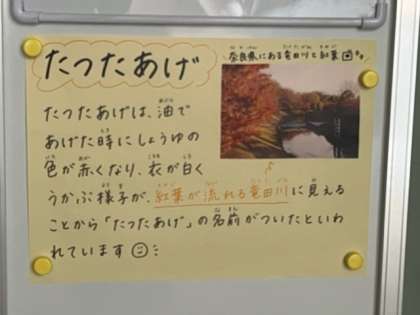 たつたあげ
奈良県にある竜田川と紅葉
たつたあげは、油で
あげた時にしょうゆの
色が赤くなり、衣が白く
うかぶ様子が、紅葉が流れる竜田川に見える
ことから「たつたあげ」の名前がついたといわ
れています